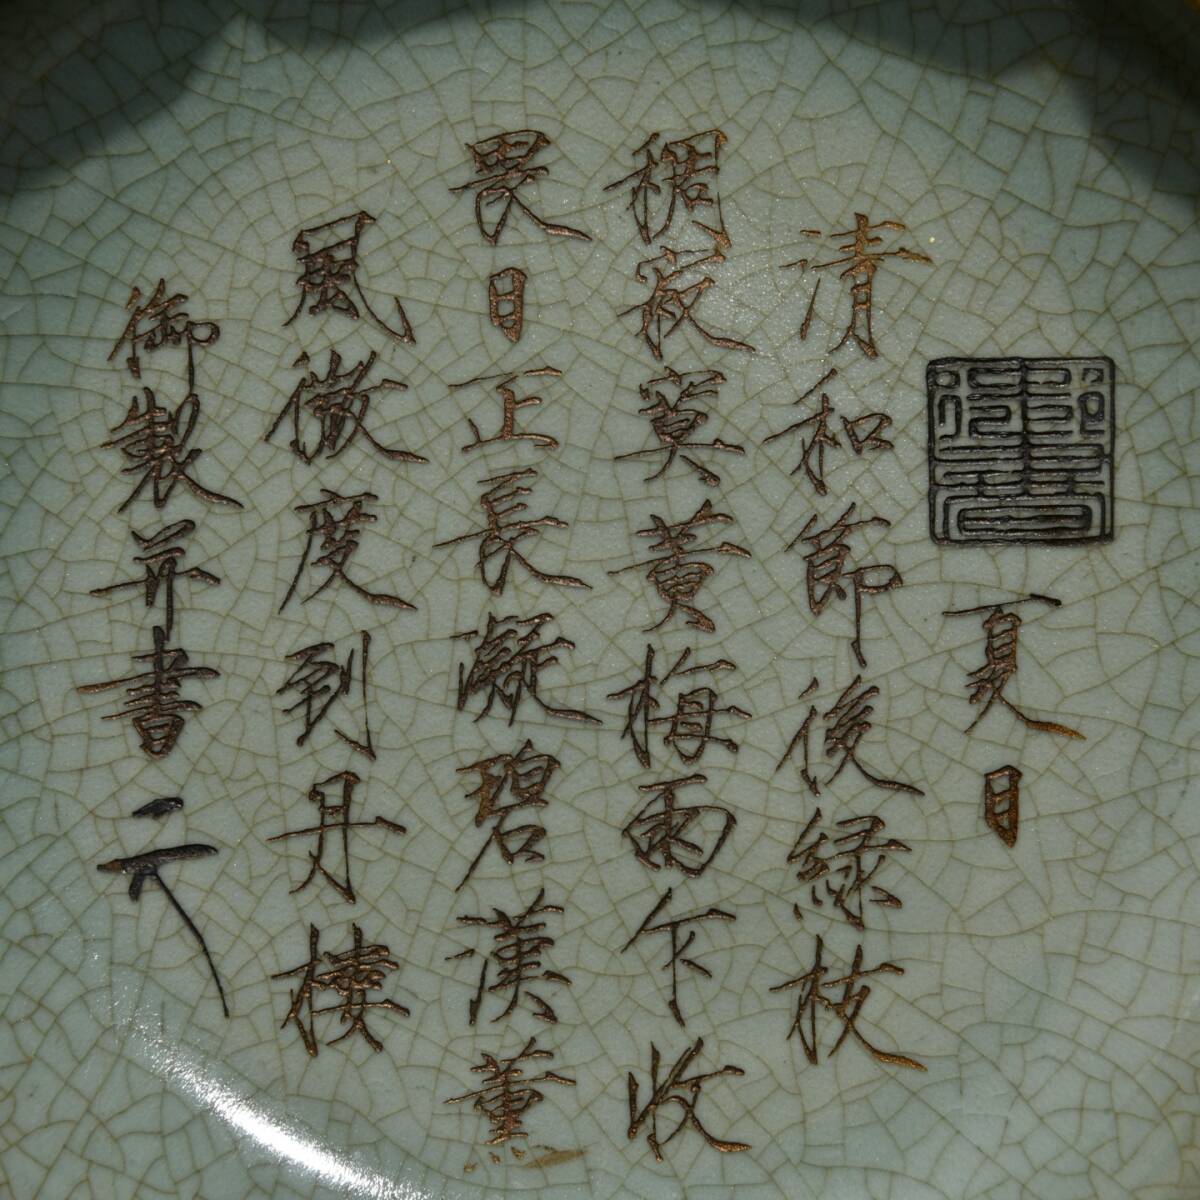 御書
夏日
清和節後綠枝
稠寂寞黃梅雨乍收
畏日正長凝碧漢薰
風微度到丹樓
御製并書